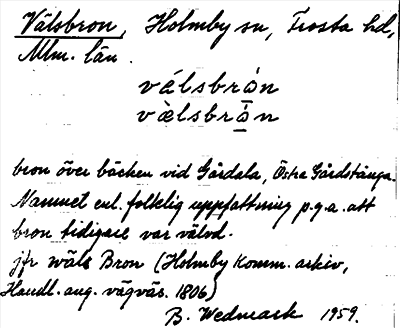 Välsbron, Holmby sn, Frosta hd,
Mlm. län.
válsbrȯ́n
vèlsbrò̱n
bron över bäcken vid Gårdala, Östra Gårdstånga.
Namnet enl. folklig uppfattning p.g.a. att
bron tidigare var välvd.
jfr wäls Bron (Holmby komm. arkiv,
Handl. ang. vägväs. 1806)
B. Wedmark 1959.